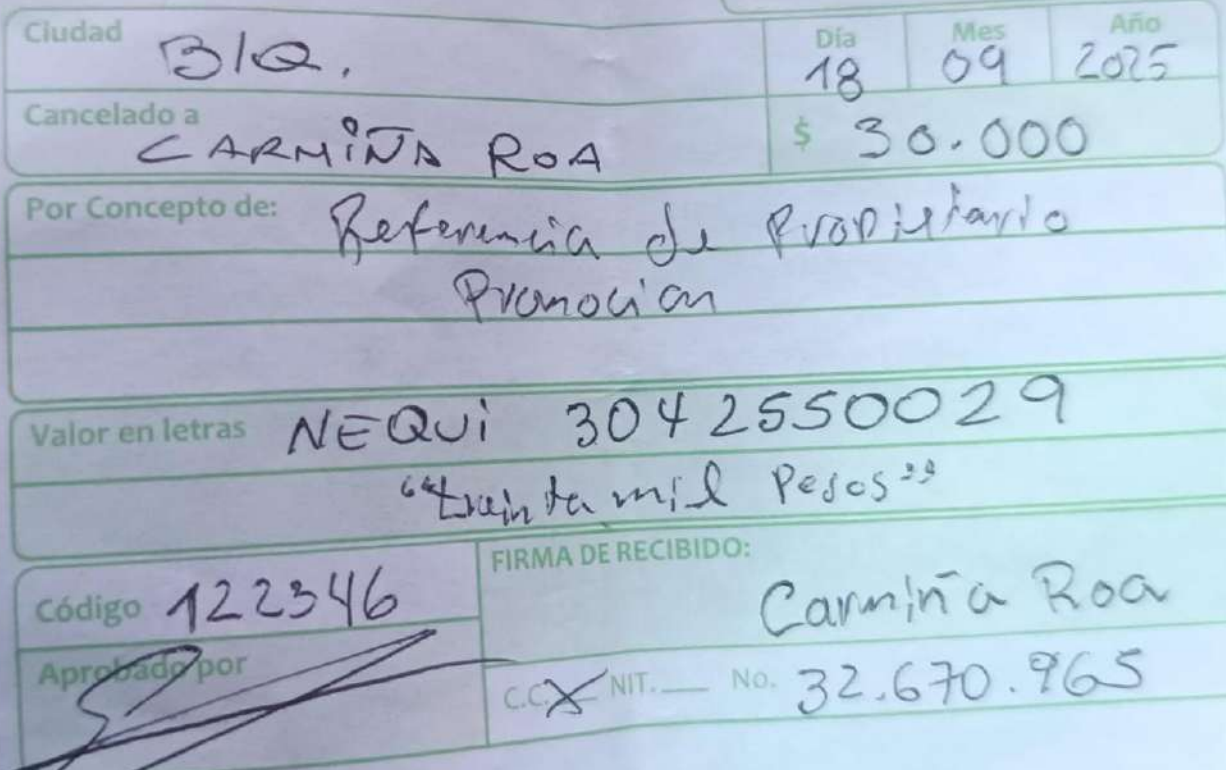 Ciudad B/Q.
Día Mes Año
18 09 2025
Cancelado a CARMIÑA ROA
$ 30.000
Por Concepto de: Referencia de Propietario
Promocion
Valor en letras NEQUi 3042550029
“treinta mil Pesos”
Código 122346
Aprobado por
FIRMA DE RECIBIDO:
Carmiña Roa
C.C. X NIT. No. 32.670.965